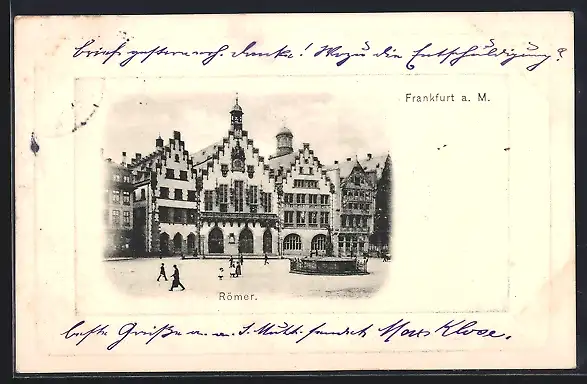 Brief gestern erh. danke! Wozu die Entschuldigung?
Frankfurt a. M.
Römer.
beste Grüße a. w. s. Mutt. sendet Max Klose.